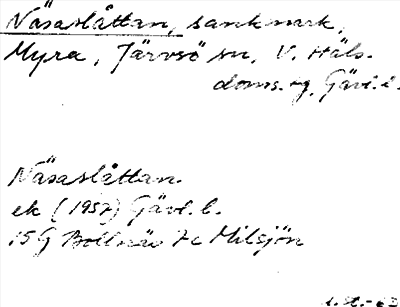 Näsaslåttan, sankmark,
Myra, Järvsö sn, V. Häls.
doms. sg, Gävl. l.
Näsaslåttan.
ek (1957) Gävl. l.
15G Bollnäs 7c Milsjön